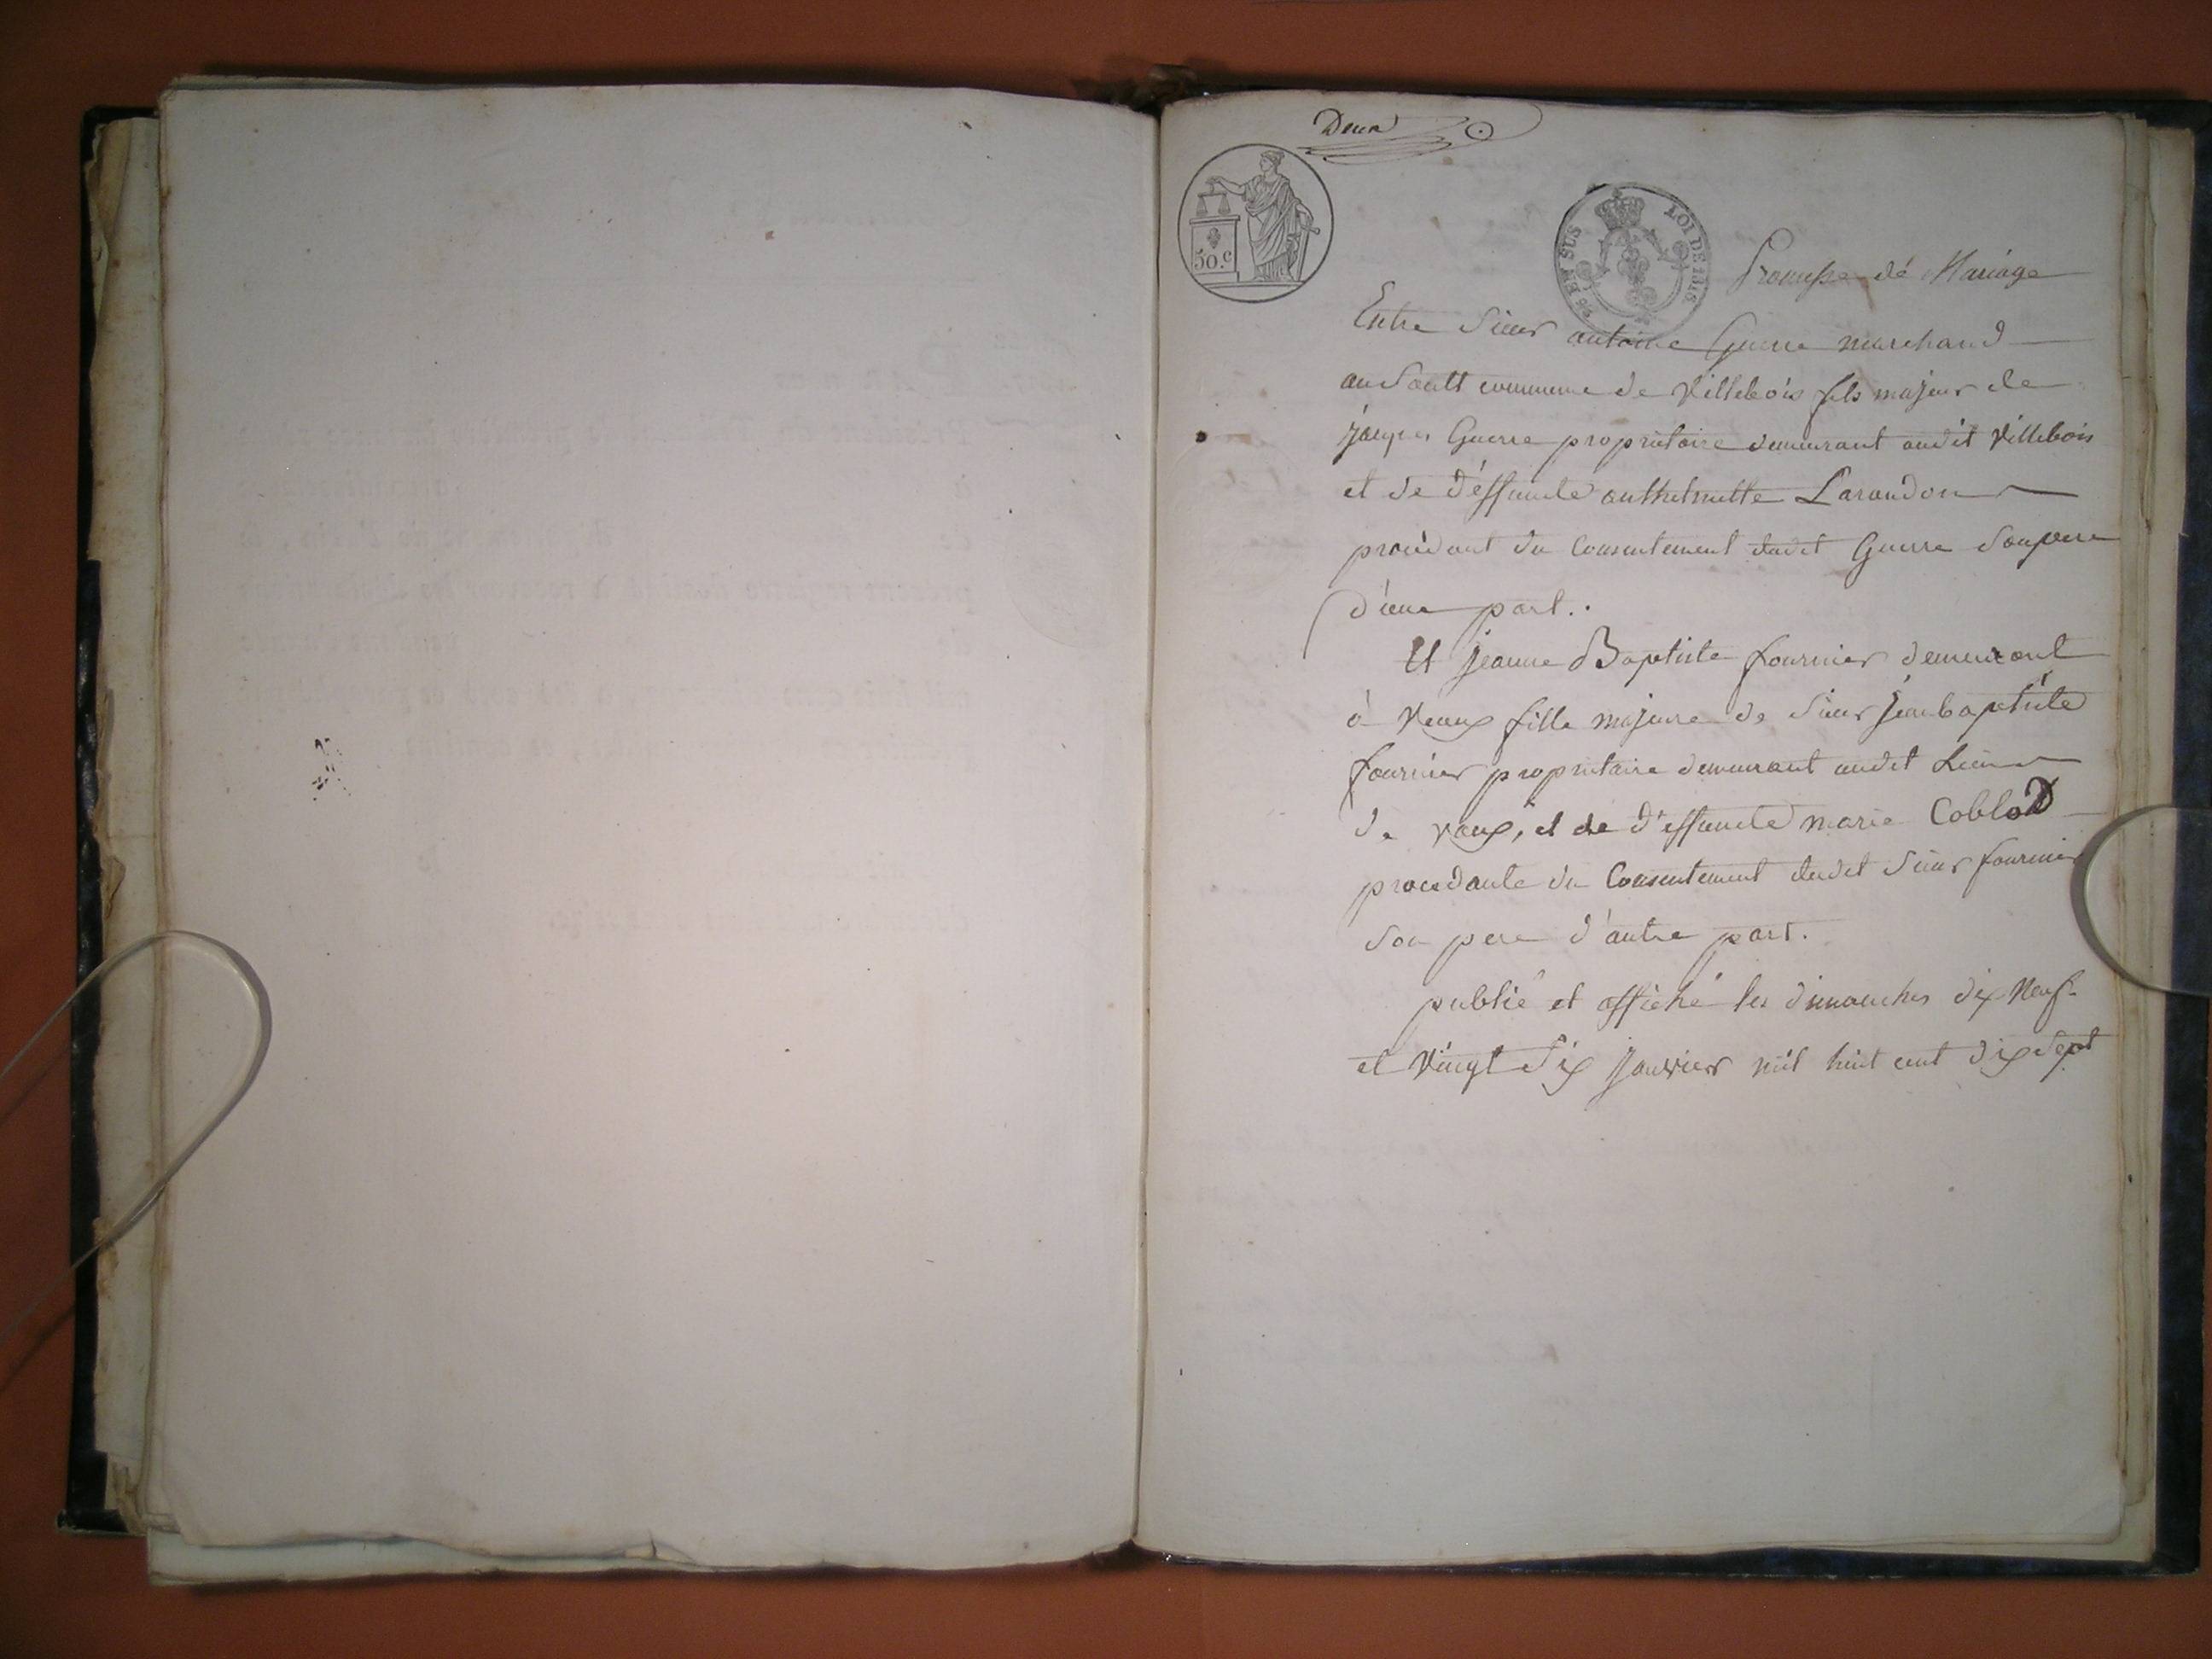 Deux
50.c
EN SUS
LOI DE 1816
Promesse de Mariage
Entre Sieur antoine Guerre marchand
au Sault commune de Villebois fils majeur de
jacques Guerre propriétaire demeurant audit Villebois
et de déffuncte anthelmette Larandon
procédant du Consentement dudit Guerre Son pere
d'une part.
Et jeanne Baptiste fournier demeurant
à Vaux fille majeure de Sieur jean baptiste
fournier propriétaire demeurant audit Lieu
de vaux, et de d'effuncte marie Coblod
procedante du Consentement dudit Sieur fournier
Son pere d'autre part.
publié et affiché les dimanches dix Neuf
et Vingt Six janvier mil huit cent dix Sept